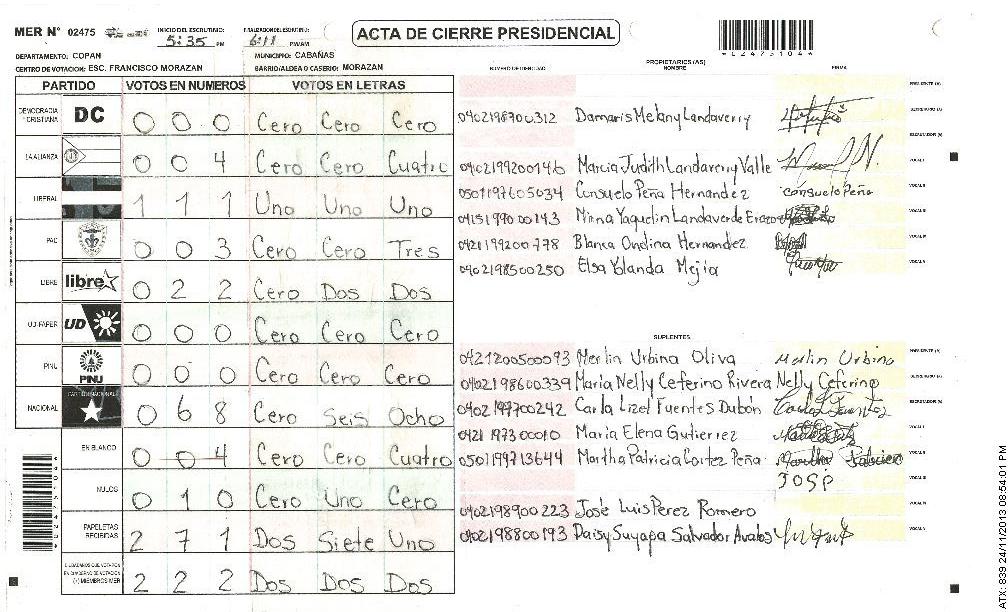 MER N° 02475 INICIO DEL ESCRUTINIO: 5:35 PM FINALIZACION DEL ESCRUTINIO: 6:11 PM/AM
ACTA DE CIERRE PRESIDENCIAL
DEPARTAMENTO: COPAN MUNICIPIO: CABAÑAS
CENTRO DE VOTACION: ESC. FRANCISCO MORAZAN BARRIO/ALDEA O CASERIO: MORAZAN
PARTIDO VOTOS EN NUMEROS VOTOS EN LETRAS
DEMOCRACIA CRISTIANA DC 0 0 0 Cero Cero Cero
LA ALIANZA 0 0 4 Cero Cero Cuatro
LIBERAL 1 1 1 Uno Uno Uno
PAC 0 0 3 Cero Cero Tres
LIBRE libre 0 2 2 Cero Dos Dos
UD-FAPER UD 0 0 0 Cero Cero Cero
PINU PINU 0 0 0 Cero Cero Cero
NACIONAL PARTIDO NACIONAL 0 6 8 Cero Seis Ocho
EN BLANCO 0 0 4 Cero Cero Cuatro
NULOS 0 1 0 Cero Uno Cero
PAPELETAS RECIBIDAS 2 7 1 Dos Siete Uno
CIUDADANOS QUE VOTARON EN CUADERNO DE VOTACION (+) MIEMBROS MER 2 2 2 Dos Dos Dos
NUMERO DE IDENTIDAD PROPIETARIOS (AS) NOMBRE FIRMA
PRESIDENTE (A)
0402198700312 Damaris Melany Landaverry SECRETARIO (A)
ESCRUTADOR (A)
0402199200146 Marcia Judith Landaverry Valle VOCAL I
0501197605034 Consuelo Peña Hernandez consuelo Peña VOCAL II
0415199000143 Mirna Yaquelin Landaverde Erazo VOCAL III
0421199200778 Blanca Ondina Hernandez VOCAL IV
0402198500250 Elsa Yolanda Mejia VOCAL V
SUPLENTES
0421200500093 Merlin Urbina Oliva Merlin Urbina PRESIDENTE (A)
0402198600339 Maria Nelly Ceferino Rivera Nelly Ceferino SECRETARIO (A)
0402197700242 Carla Lizel Fuentes Dubón ESCRUTADOR (A)
0421197300010 Maria Elena Gutierrez VOCAL I
0501199713644 Martha Patricia Cortez Peña Martha Patricia
JOSP
0402198900223 Jose Luis Perez Romero VOCAL IV
0402198800193 Daisy Suyapa Salvador Avalos VOCAL V
ATX: 839 24/11/2013 08:54:01 PM